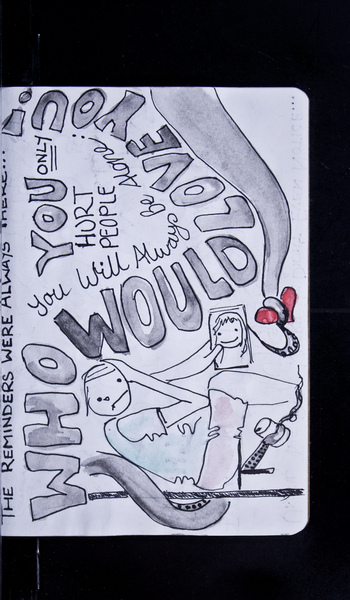 THE REMINDERS WERE ALWAYS THERE...
WHO WOULD LOVE YOU?
YOU ONLY
HURT
PEOPLE
You Will Always be Alone